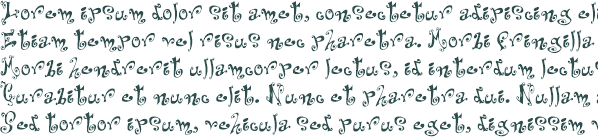 Lorem ipsum dolor sit amet, consectetur adipiscing eli
Etiam tempor vel risus nec pharetra. Morbi fringilla
Morbi hendrerit ullamcorper lectus, id interdum lectus
Curabitur et nunc elit. Nunc et pharetra dui. Nullam
Sed tortor ipsum, vehicula sed purus eget, dignissim v